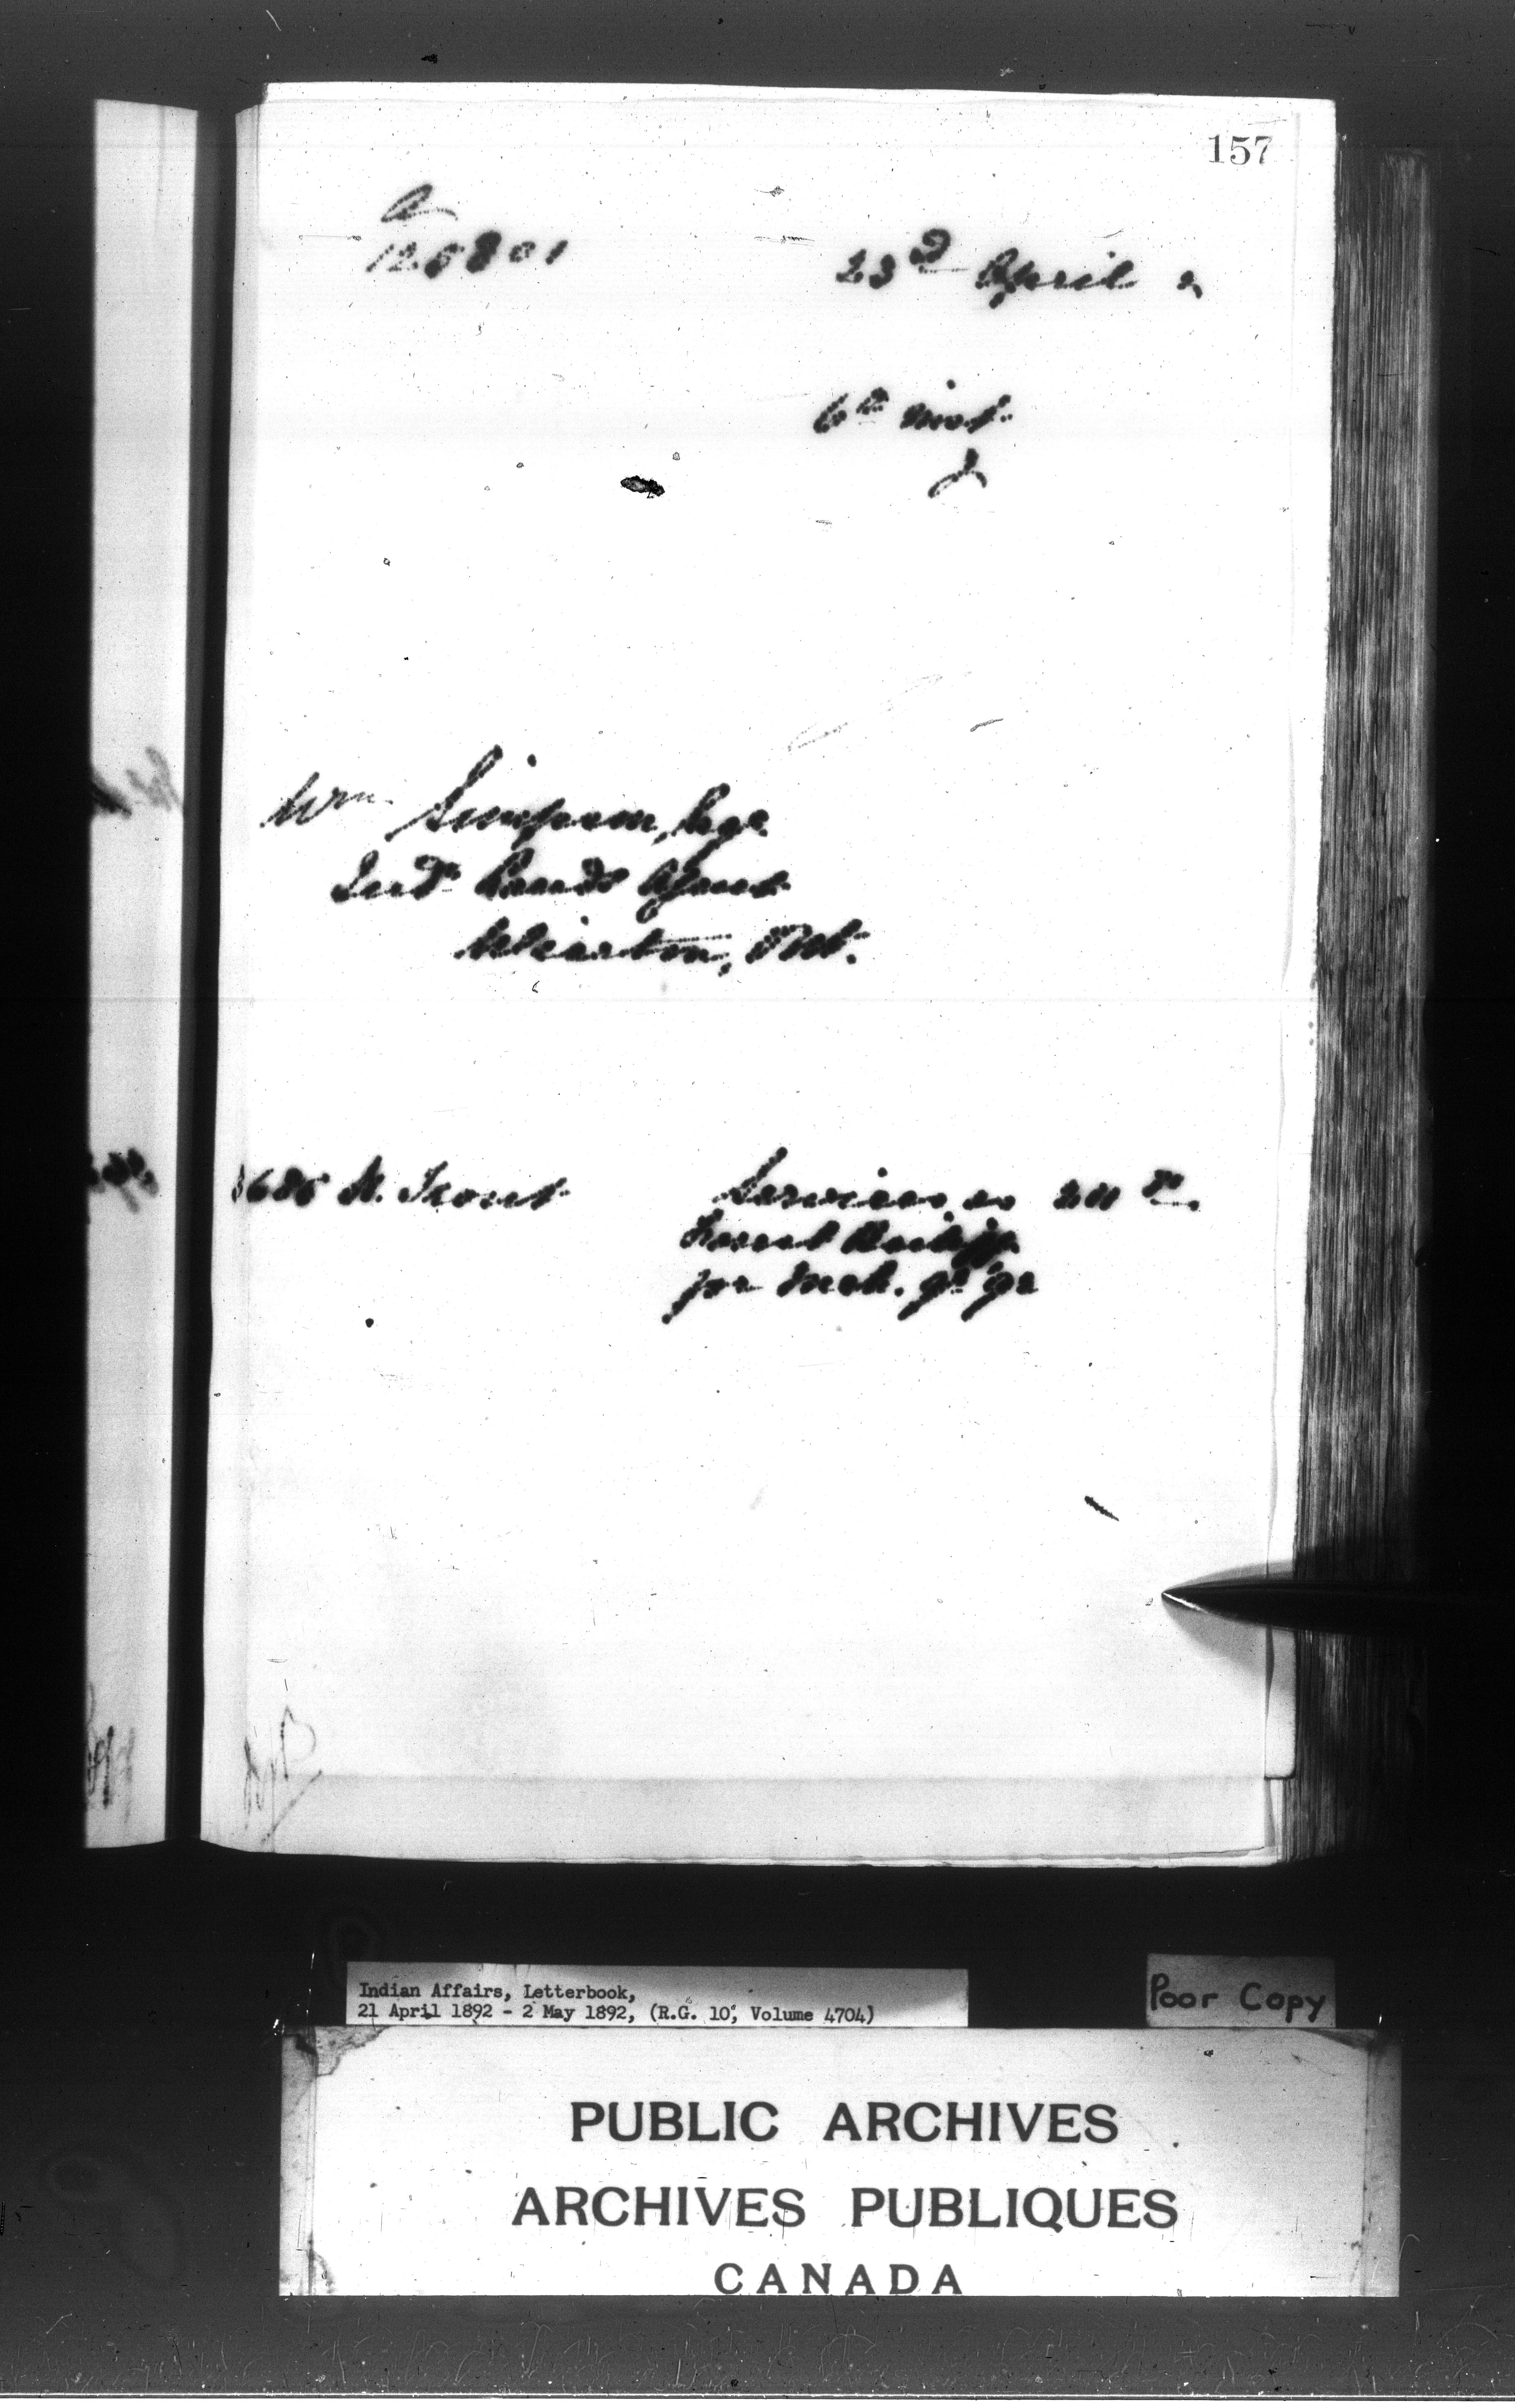 157
125801
23d April 2
6th inst.
Wm Simpson, Esq.
Indn Lands Agent
Wiarton, Ont.
686 N. Trout
Services as
Forest Bailiff
for Mch. 92
Indian Affairs, Letterbook,
21 April 1892 - 2 May 1892, (R.G. 10, Volume 4704)
Poor Copy
PUBLIC ARCHIVES
ARCHIVES PUBLIQUES
CANADA